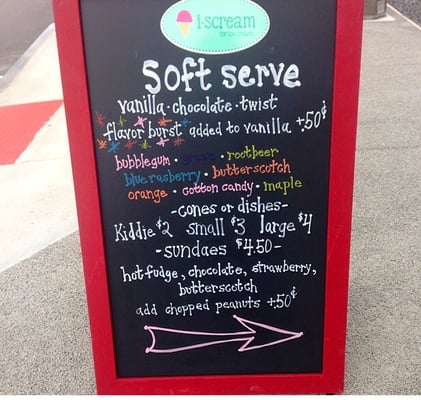 i-scream
for ice cream
Soft serve
vanilla · chocolate · twist
flavor burst added to vanilla +.50¢
bubblegum · grape · rootbeer
blue rasberry · butterscotch
orange · cotton candy · maple
-cones or dishes-
Kiddie $2 small $3 large $4
-sundaes $4.50-
hot fudge, chocolate, strawberry,
butterscotch
add chopped peanuts +.50¢